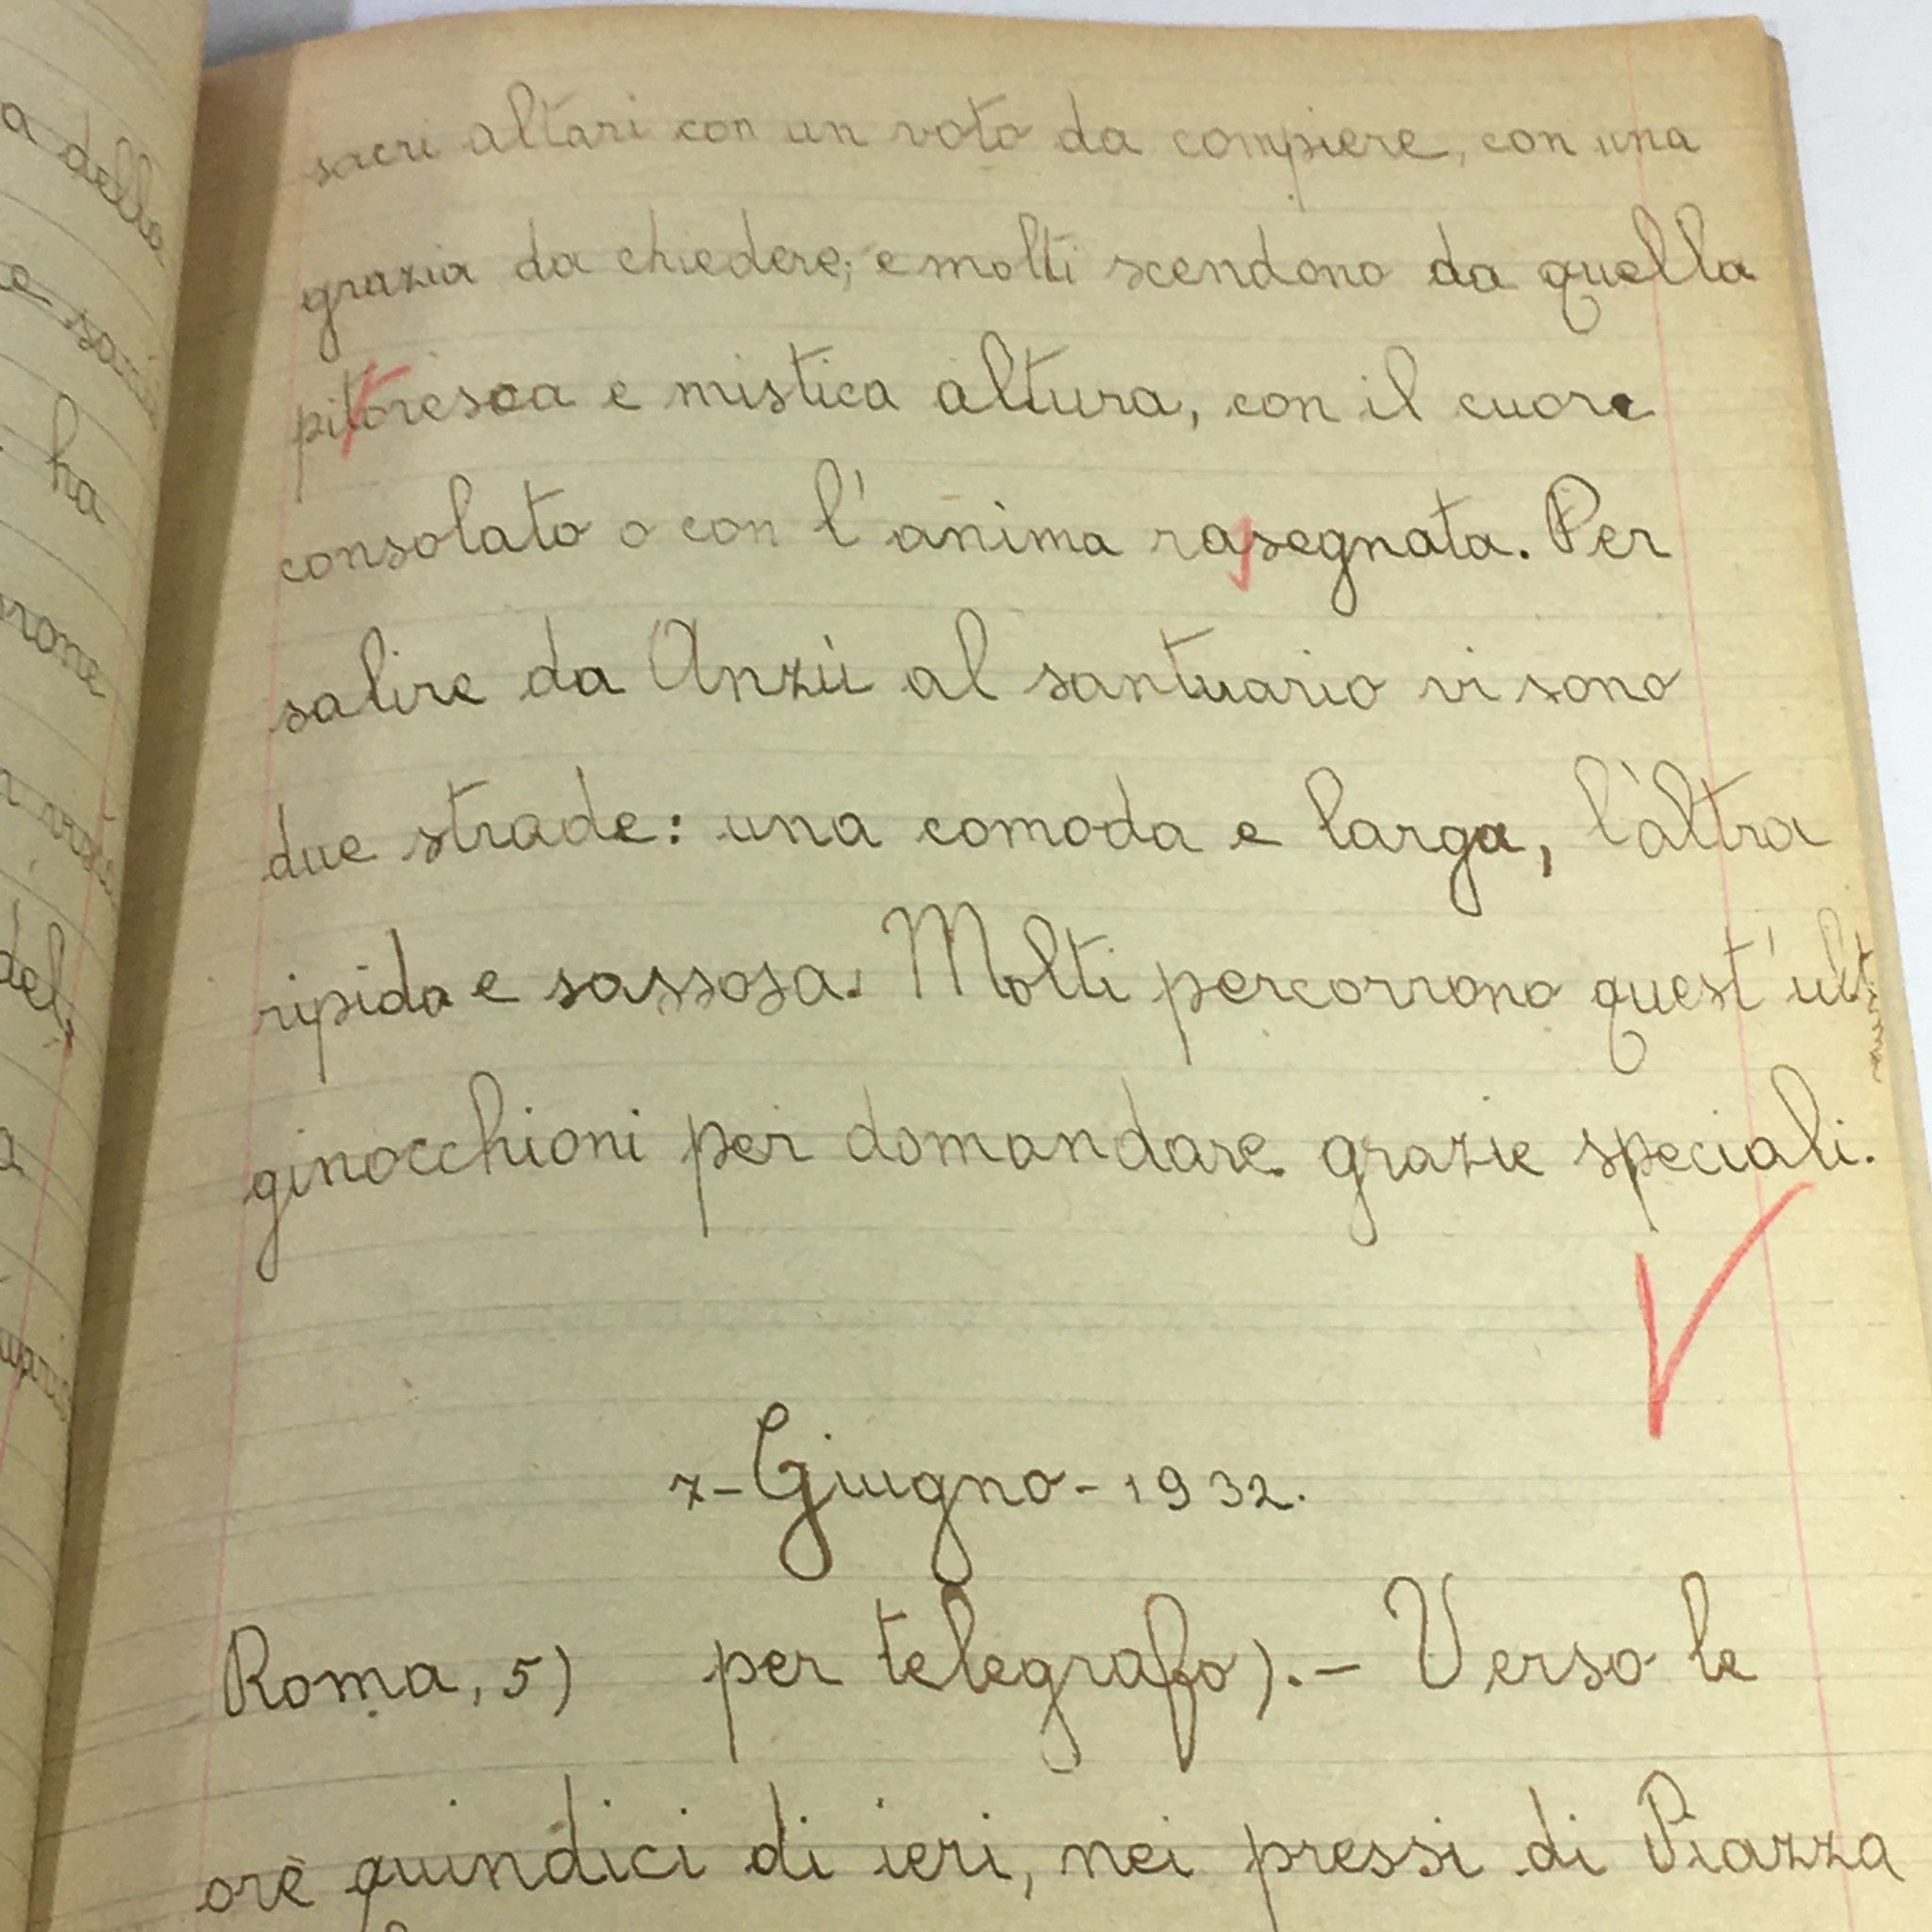 sacri altari con un voto da compiere, con una
grazia da chiedere; e molti scendono da quella
pittoresca e mistica altura, con il cuore
consolato o con l'anima rassegnata. Per
salire da Anzù al santuario vi sono
due strade: una comoda e larga, l'altra
ripida e sassosa. Molti percorrono quest'ultima
ginocchioni per domandare grazie speciali.
7-Giugno-1932.
Roma, 5) per telegrafo).- Verso le
ore quindici di ieri, nei pressi di Piazza
a della
ha
del,
a